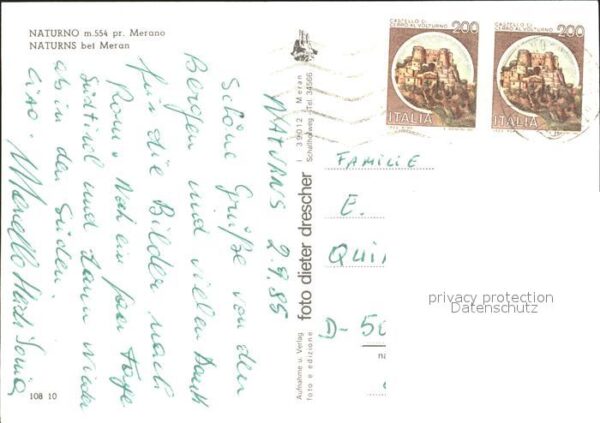 NATURNO m.554 pr. Merano
NATURNS bei Meran
NATURNS 2.9.85
Schöne Grüße von den
Bergen und vielen Dank
für die Bilder nach
Rom. Noch ein paar Tage
Südtirol und dann wieder
ab in den Süden.
Ciao. Marcello Heidi Sonia
108 10
Aufnahme u. Verlag
foto e edizione
foto dieter drescher
I 39012 Meran
Schafferweg - Tel. 34566
CASTELLO DI
CERRO AL VOLTURNO
200
ITALIA
CASTELLO DI
CERRO AL VOLTURNO
200
ITALIA
FAMILIE
E.
QUI
D-50
privacy protection
Datenschutz